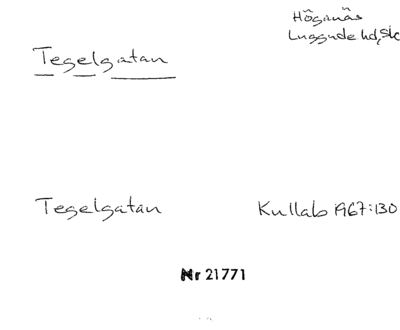 Höganäs
Luggude hd, Sk
Tegelgatan
Tegelgatan Kullab 1967:130
Nr 21771